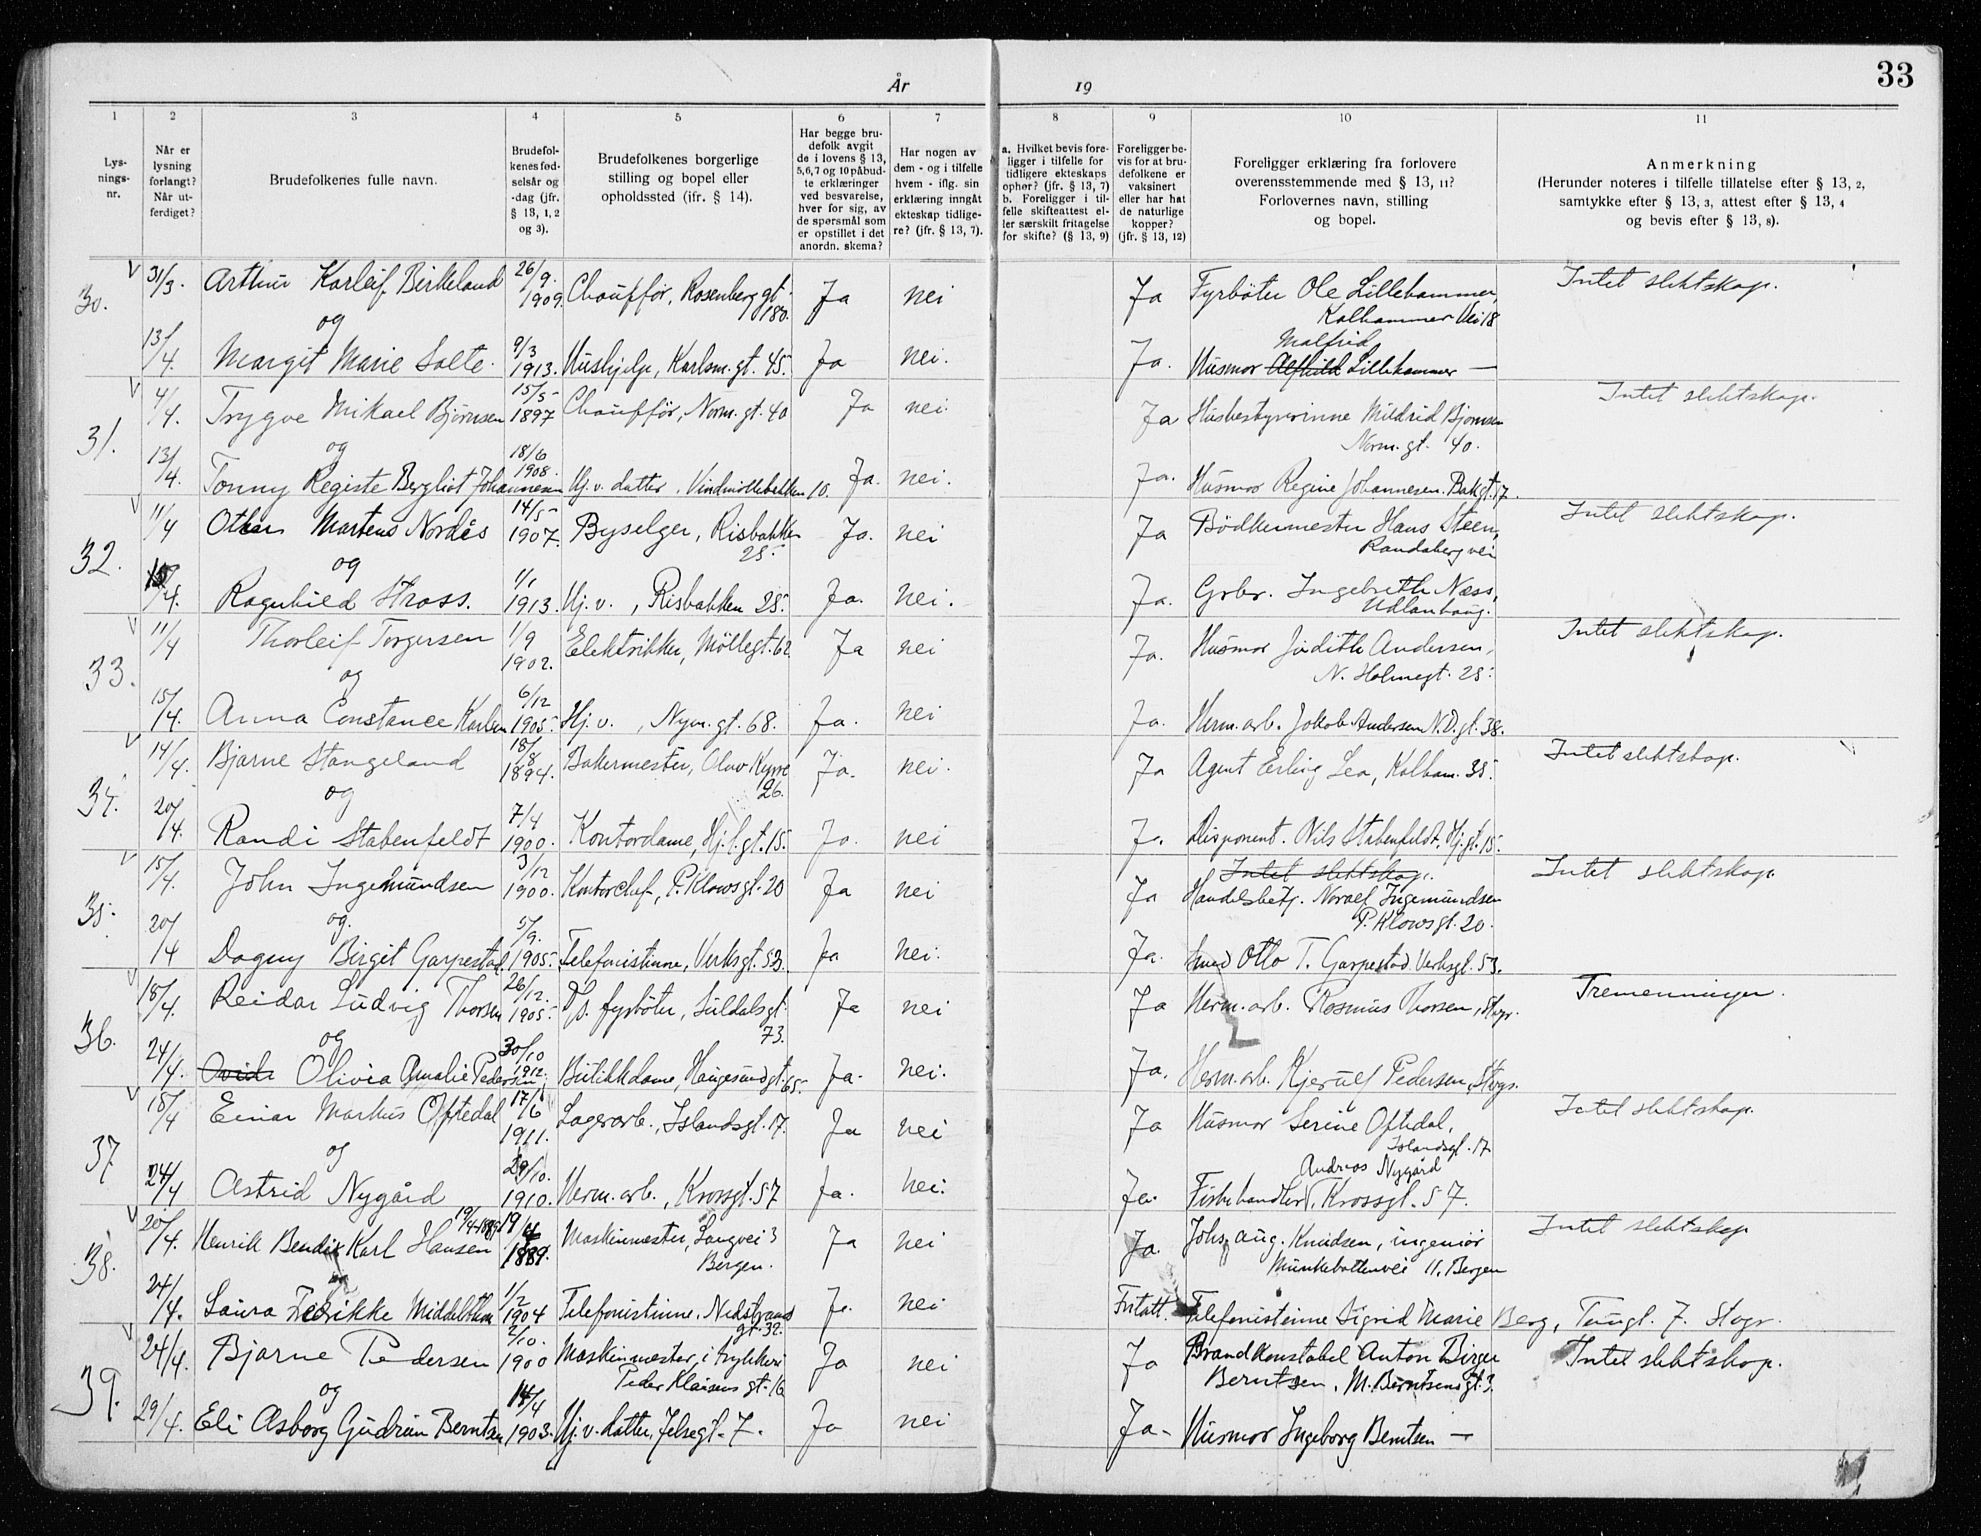 33
År 19
1 2 3 4 5 6 7 8 9 10 11
Lys-
nings-
nr.
Når er
lysning
forlangt?
Når ut-
ferdiget?
Brudefolkenes fulle navn.
Brudefol-
kenes fød-
selsår og
-dag (jfr.
§ 13, 1, 2
og 3).
Brudefolkenes borgerlige
stilling og bopel eller
opholdssted (ifr. § 14).
Har begge bru-
defolk avgit
de i lovens § 13,
5,6,7 og 10 påbud-
te erklæringer
ved besvarelse,
hver for sig, av
de spørsmål som
er opstillet i det
anordn. skema?
Har nogen av
dem - og i tilfelle
hvem - iflg. sin
erklæring inngåt
ekteskap tidlige-
re? (jfr. § 13, 7).
a. Hvilket bevis fore-
ligger i tilfelle for
tidligere ekteskaps
ophør? (jfr. § 13, 7)
b. Foreligger i til-
felle skifteattest el-
ler særskilt fritagelse
for skifte? (§ 13, 9)
Foreligger be-
vis for at bru-
defolkene er
vaksinert
eller har hat
de naturlige
kopper?
(jfr. § 13, 12)
Foreligger erklæring fra forlovere
overensstemmende med § 13, 11?
Forlovernes navn, stilling
og bopel.
Anmerkning
(Herunder noteres i tilfelle tillatelse efter § 13, 2,
samtykke efter § 13, 3, attest efter § 13, 4
og bevis efter § 13, 8).
30. 31/3. Arthur Karleif Birkeland 26/9. 1909. Chauffør, Rosenberggt. 180. Ja nei Ja Fyrbøter Ole Lillehammer, Intet slektskap.
Kalhammer Vei 18
og
Malfrid
13/4. Margit Marie Salte. 9/3 1913. Hushjelp, Karlsm. gt. 45. Ja nei. Ja. Husmor Alfhild Lillehammer —
31. 4/4. Trygve Mikael Bjørnsen 15/5 1897 Chauffør, Norm. gt. 40 Ja nei. Ja Husbestyrerinne Mildrid Bjørnsen Intet slektskap.
Norm. gt. 40.
og
13/4. Tonny Registe Bergliot Johannesen 18/6 1908. Hj. v. datter, Vindmøllebakken 10. Ja. nei. Ja. Husmor Regine Johannesen. Bakgt. 17.
32. 11/4 Martens Nordås 14/5 1907. Byselger, Risbakken Ja. nei Ja Bødkermester Hans Steen, Intet slektskap.
25. Randabergvei
og
/4. Ragnhild Stross. 1/1 1913. Hj. v. , Risbakken 25. Ja. nei. Ja. Grbr. Ingebreth Næss,
Udlanhaug.
33. 11/4 Thorleif Torgersen 1/9 1902. Elektriker, Møllegt. 62 Ja nei Ja. Husmor Judith Andersen, Intet slektskap.
N. Holmegt. 25.
og
15/4. Anna Constance Karlsen 6/12 1905. Hj. v. , Nym. gt. 68. Ja. nei Ja. Herm. arb. Jakob Andersen N. D. gt. 38.
34. 14/4. Bjarne Stangeland 18/8 1894. Bakermester, Olav Kyrre Ja. nei. Ja Agent Erling Lea, Kalham. 35. Intet slektskap.
26.
og
20/4. Randi Stabenfeldt 7/4 1900. Kontordame, Hj. l. gt. 15. Ja. nei Ja. Disponent. Nils Stabenfeldt. Hj. gt. 15.
Intet slektskap.
35. 15/4. John Ingemundsen 3/12 1900. Kontorchef, P. Klowsgt. 20 Ja nei Ja Handelsbetj. Noralf Ingemundsen Intet slektskap.
P. Klowsgt. 20.
og.
20/4 Dagny Birgit Garpestad. 5/9. 1905. Telefonistinne, Verksgt. 53. Ja nei. Ja. Smed Otto T. Garpestad. Verksgt. 53.
36. 18/4. Reidar Ludvig Thorsen 26/12. 1905. D/s. fyrbøter, Suldalsgt. Ja nei Ja Herm. arb. Rasmus Thorsen, Stvgr. Tremenninger.
73.
og
24/4. Olivia Amalie Pedersen 30/10 1912. Butikkdame, Haugesundgt. 65. Ja. nei. Ja. Herm. arb. Kjerulf Pedersen, Stvgr.
37 18/4 Einar Markus Oftedal 17/6 1911. Lagerarb., Islandsgt. 17. Ja nei Ja Husmor Serine Oftedal, Intet slektskap.
Islandsgt. 17
og
Andreas Nygård
24/4 Astrid Nygård 29/10. 1910. Herm. arb., Krossgt. 57 Ja. nei. Ja. Fiskehandler, Krossgt. 57.
38. 20/4. Henrik Bendix Karl Hansen 19/4 1889 19/4 1889. Maskinmester, Langvei 3 Ja nei Ja. Johs. Aug. Knudsen, ingeniør Intet slektskap
Bergen. Munkebottenvei 11. Bergen
og
24/4. Laura Fedrikke Middelthon 1/2 1904 Telefonistinne. Nedstrands Ja. nei Fritatt. Telefonistinne Sigrid Marie Berg, Taugt. 7. Stvgr.
gt. 32.
39. 24/4. Bjarne Pedersen 2/10. 1900 Maskinmester, i trykkeri Ja nei Ja Brandkonstabel Anton Birger Intet slektskap.
Peder Klausens gt. 16 Berntsen, M. Berntsensgt. 3.
og
29/4. Eli Asborg Gudrun Berntsen 14/4 1903. Hj. v. datter, Jelsegt. 7. Ja nei Ja. Husmor Ingeborg Berntsen —